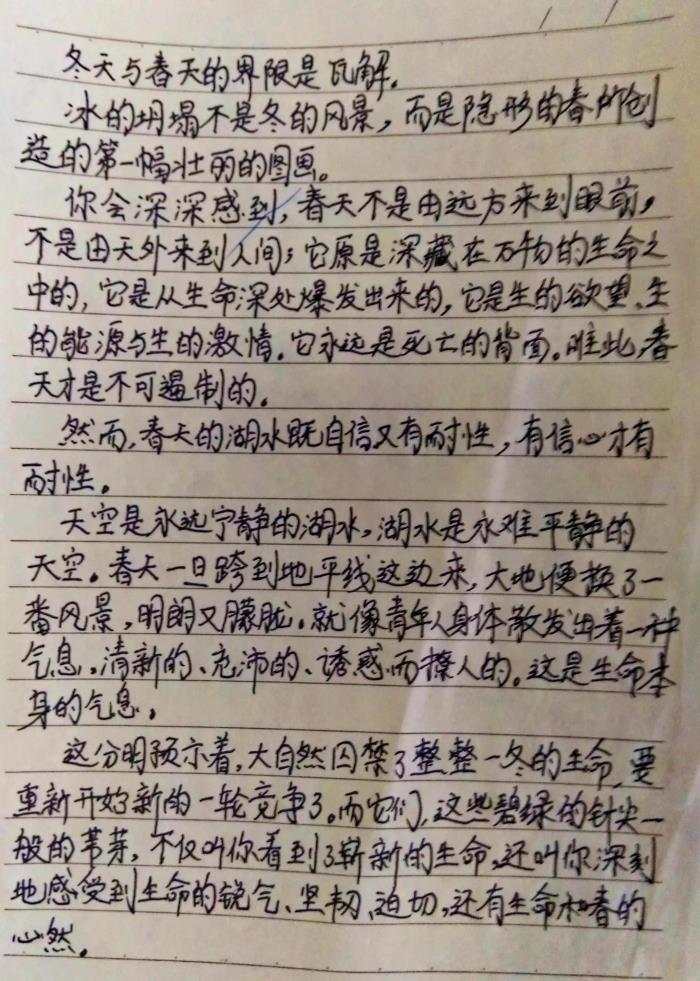 冬天与春天的界限是瓦解。
冰的坍塌不是冬的风景，而是隐形的春所创
造的第一幅壮丽的图画。
你会深深感到，春天不是由远方来到眼前，
不是由天外来到人间；它原是深藏在万物的生命之
中的，它是从生命深处爆发出来的，它是生的欲望、生
的能源与生的激情。它永远是死亡的背面。唯此，春
天才是不可遏制的。
然而，春天的湖水既自信又有耐性，有信心才有
耐性。
天空是永远宁静的湖水，湖水是永难平静的
天空。春天一旦跨到地平线这边来，大地便换了一
番风景，明朗又朦胧。就像青年人身体散发出着一种
气息。清新的、充沛的、诱惑而撩人的。这是生命本
身的气息。
这分明预示着，大自然囚禁了整整一冬的生命，要
重新开始新的一轮竞争了。而它们，这些碧绿的针尖一
般的苇芽，不仅叫你看到了崭新的生命，还叫你深刻
地感受到生命的锐气、坚韧、迫切，还有生命和春的
必然。